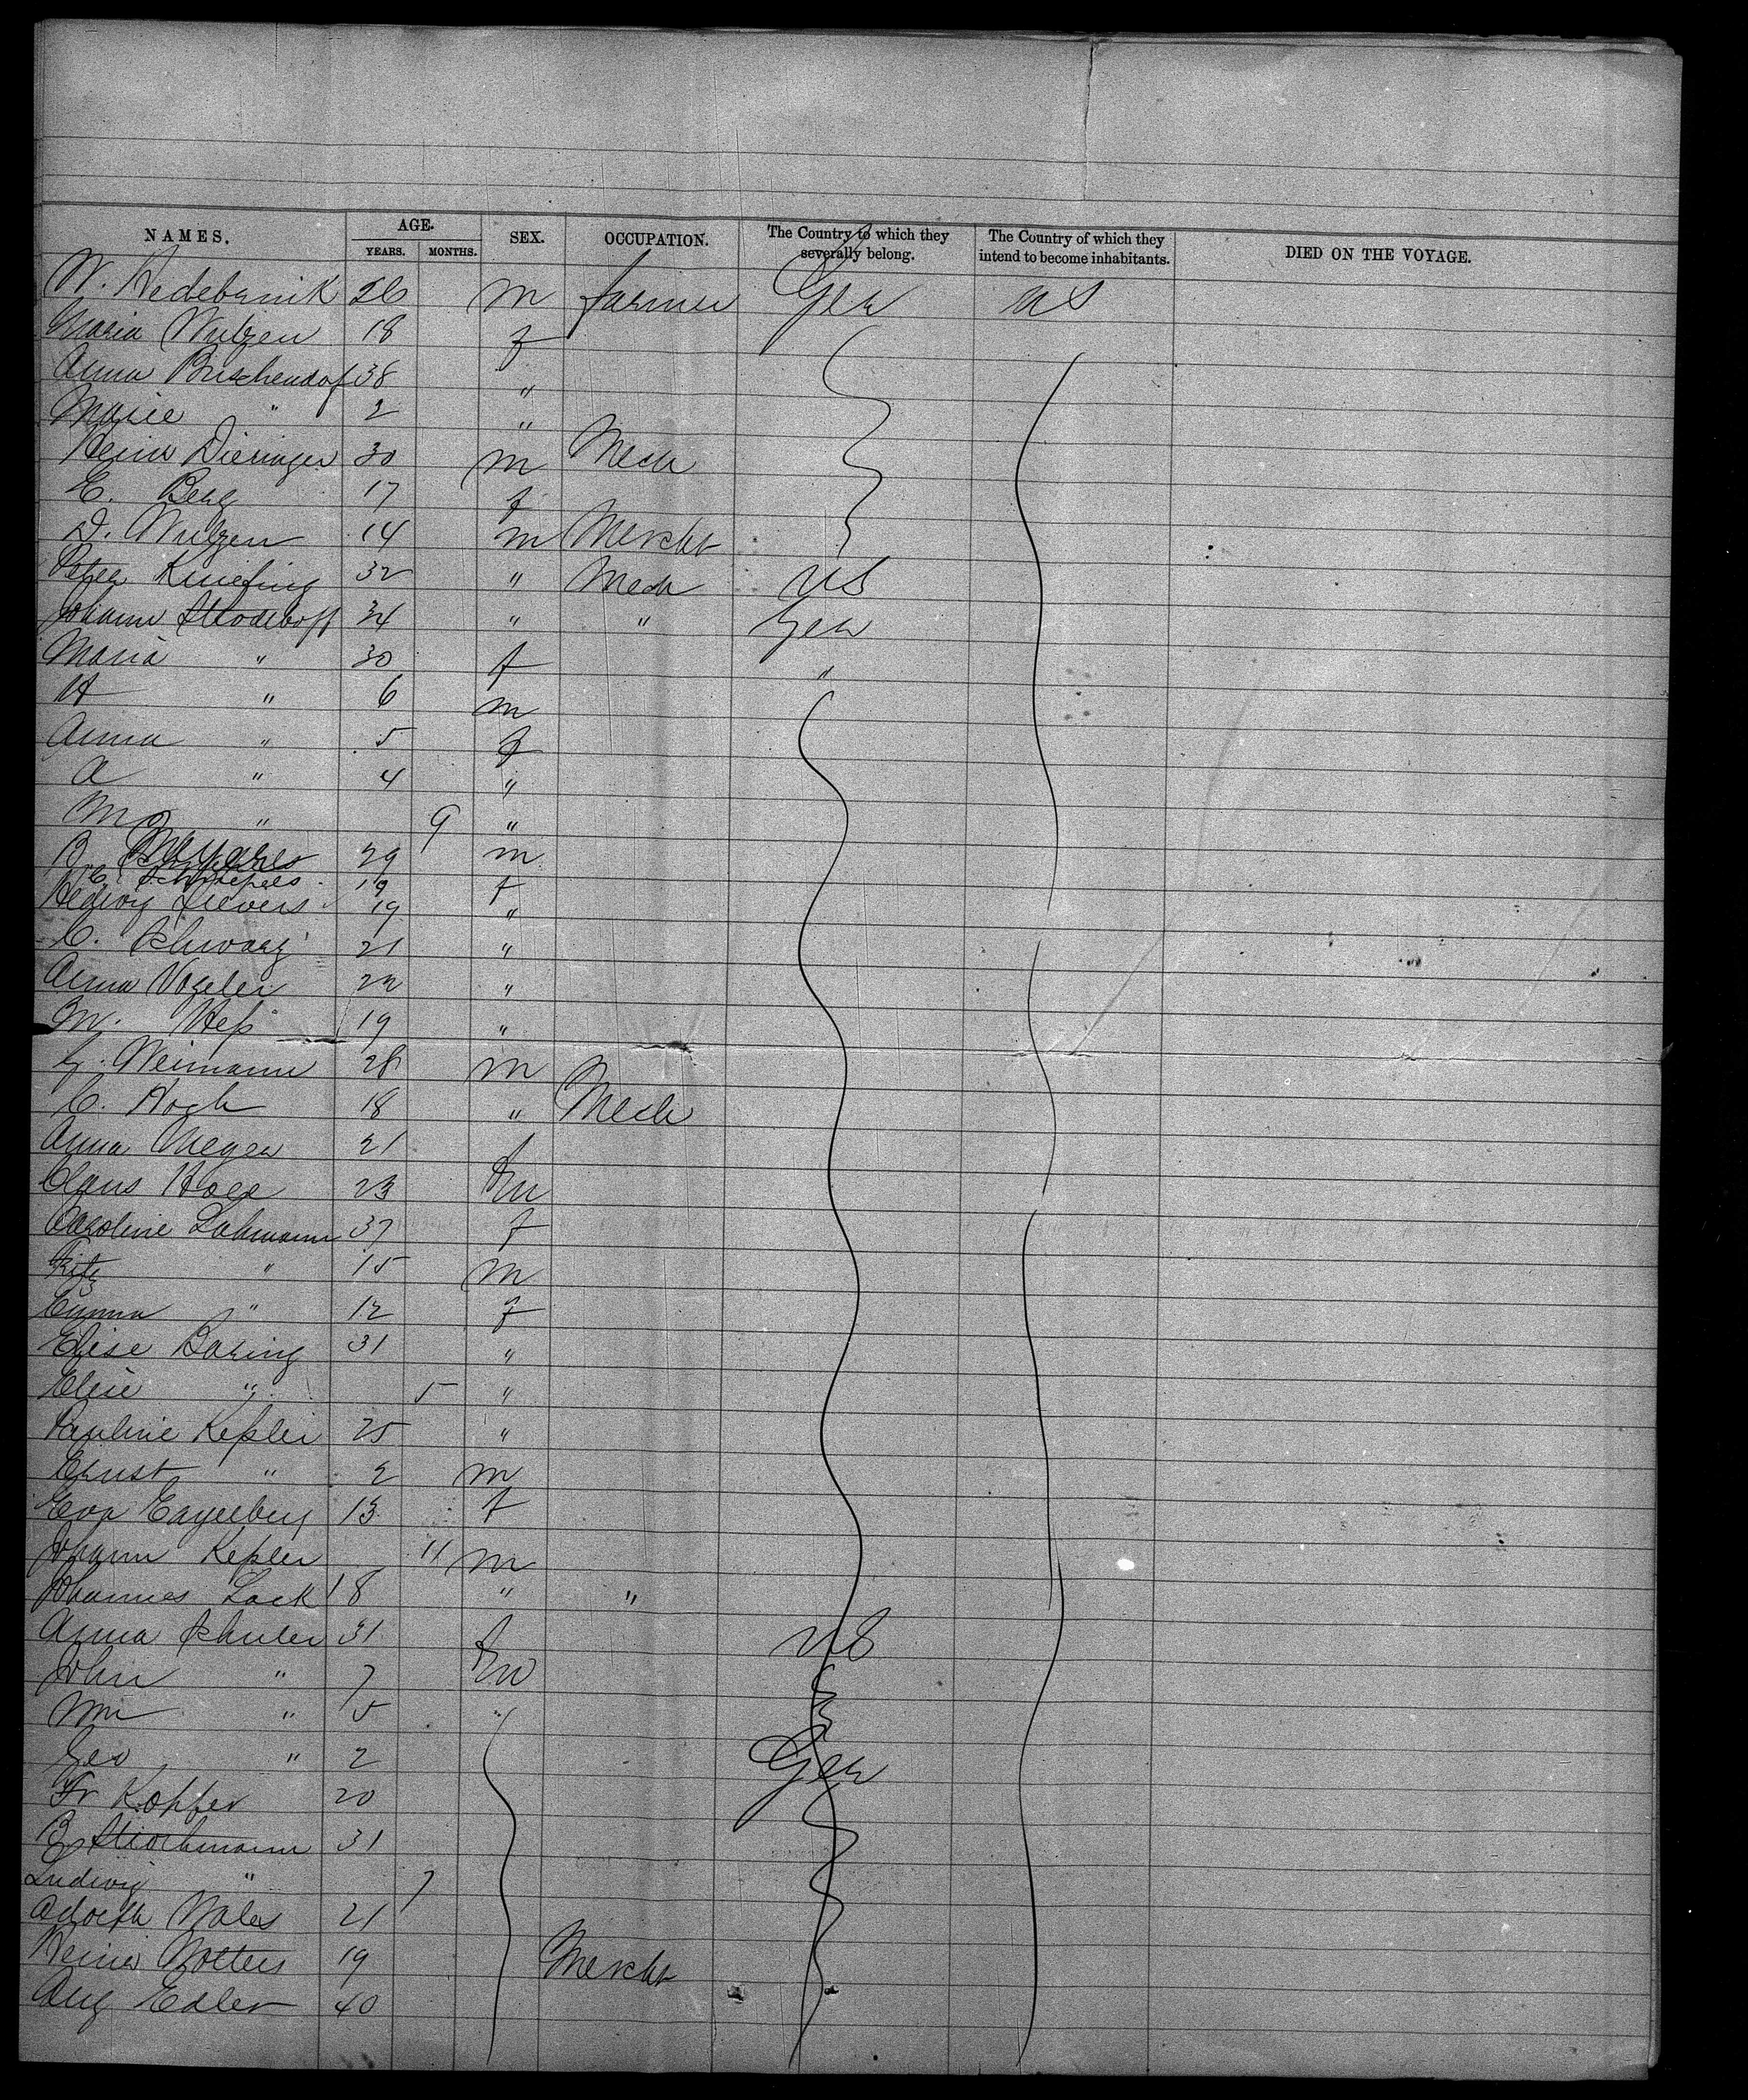 NAMES. AGE. SEX. OCCUPATION. The Country to which they severally belong. The Country of which they intend to become inhabitants. DIED ON THE VOYAGE.
YEARS. MONTHS.
W. 26 m farmer Ger US
Maria Wulzen 18 f
Anna Buschendof 38 "
Marie " 2 "
Heinr Dieringer 30 m Mech
E. Berg 17 f
D. Wulzen 14 m Mercht
Peter Kniefing 32 " Mech US
Johann Strodthoff 34 " " Ger
Maria " 30 f "
H " 6 m
Anna " 5 f
A " 4 "
M " 9 "
B. 29 m
C. 19 f
Hedwig Sievers 19 "
C. Schwarz 21 "
Anna Vogeler 22 "
M. Heß 19 "
G. Weimann 28 m
C. Koch 18 " Mech
Anna Meyer 21 f
Claus Hoge 23 m
Caroline Lahmann 37 f
Fritz " 15 m
Emma " 12 f
Elise Baring 31 "
Elise " 5 "
Pauline Keßler 25 "
Ernst " 2 m
Eva 13 f
Johann Keßler 11 m
Johannes Lack 18 " "
Anna Schuler 31 f US
John " 7 m
Wm " 5 "
Geo " 2 Ger
Fr Kopfer 20
B 31
Ludwig " 7
Adolph 21
Heinr Wolters 19 Mercht
Aug Edler 40